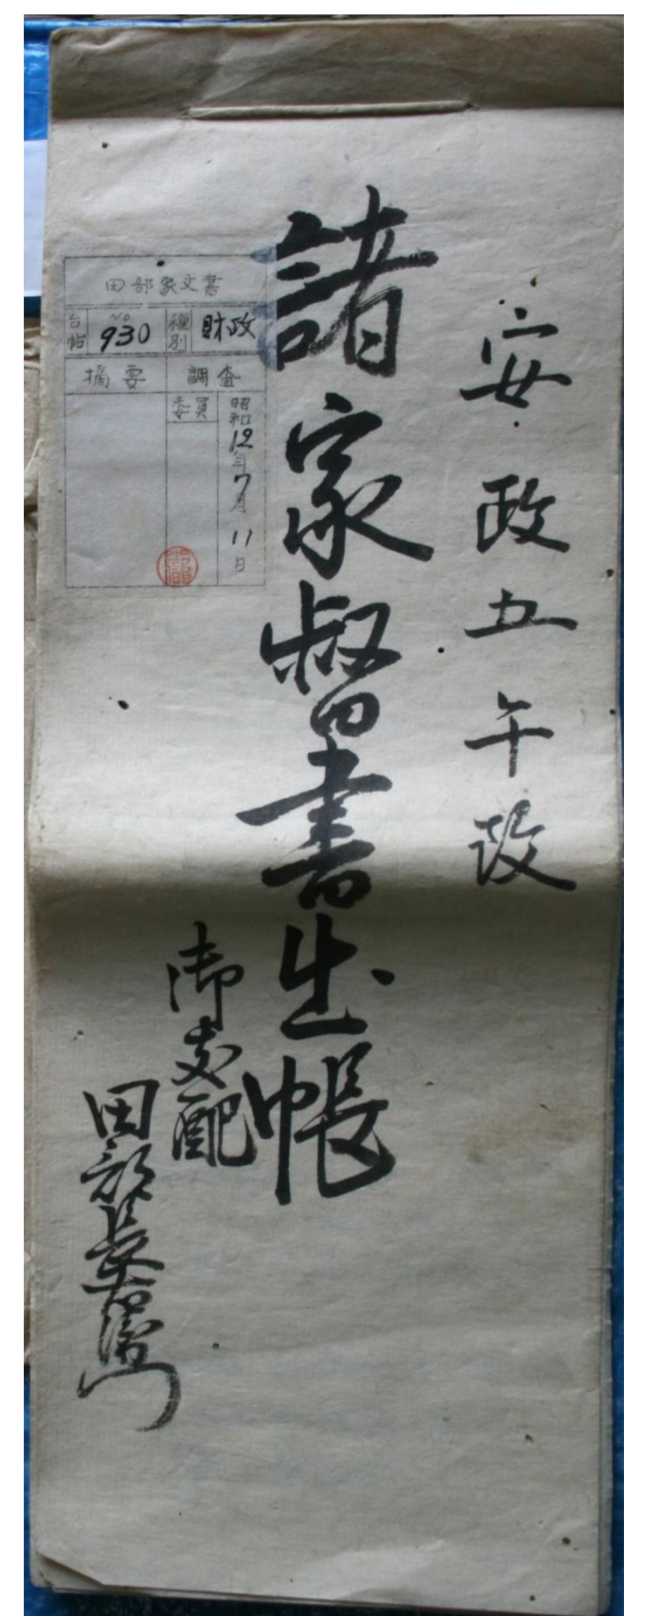 安政五午改
諸家督書出帳
御支配
田部長右衛門
田部家文書
台帖 No 930 種別 財政
摘要 調査
委員 昭和12年7月11日